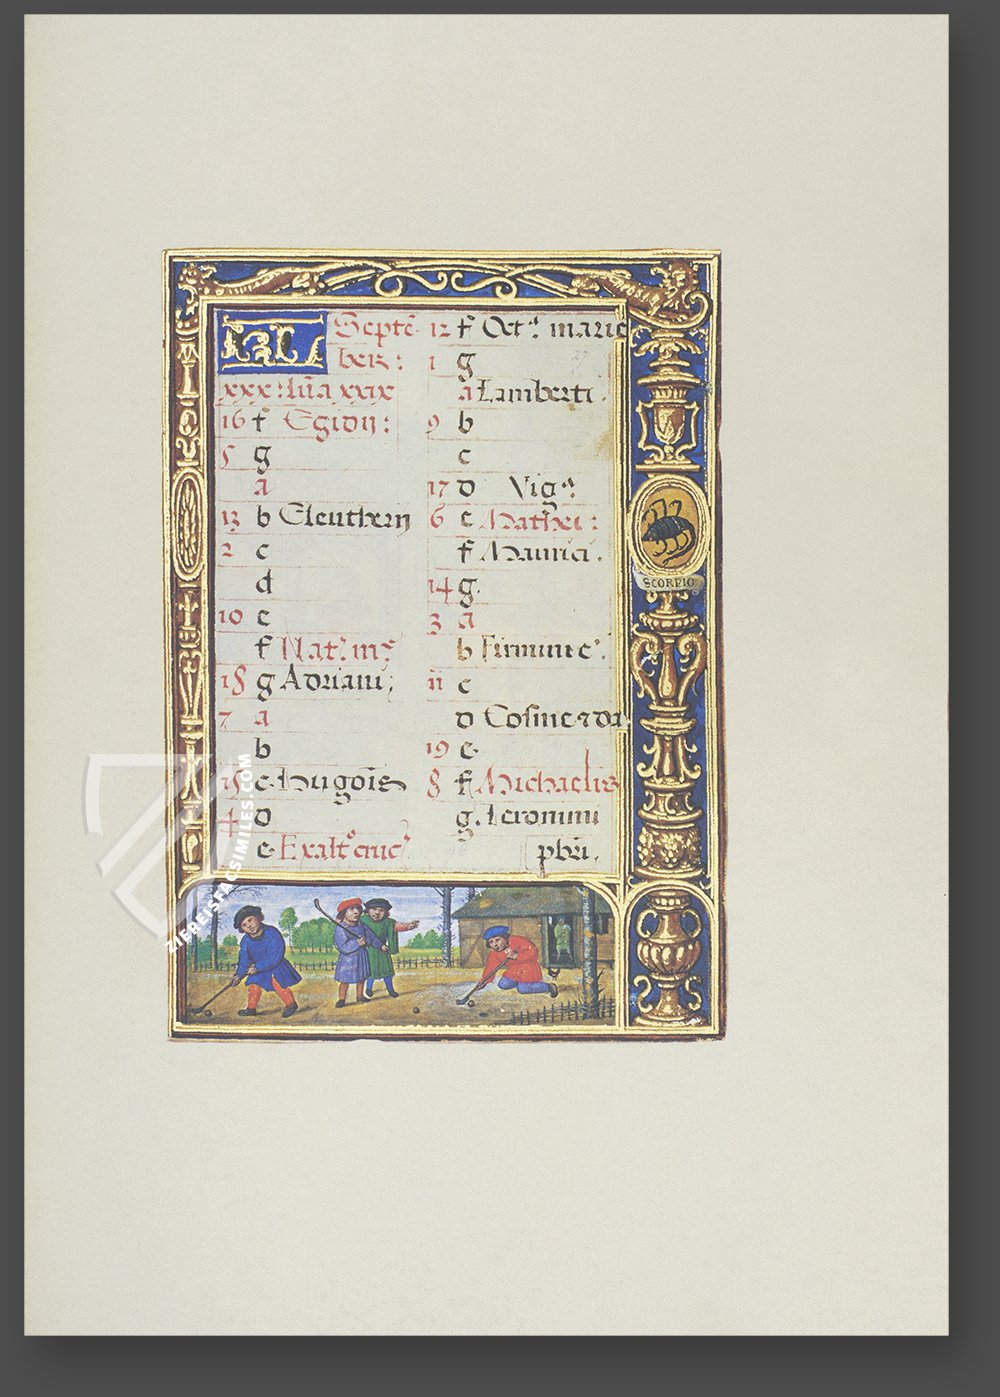 KL Septē
ber:
xxx: lūa xxix
16 f Egidij:
5 g
a
13 b Eleutherij
2 c
d
10 e
f Nat. m
18 g Adriani;
7 a
b
15 c Hugois
4 d
e Exalt° cruc
12 f Oct.a marie
1 g
a Lamberti.
9 b
c
17 d Vig.a
6 e Mathei:
f Maurici.
14 g
3 a
b Firmini e.
11 c
d Cosme & da
19 e
8 f Michaelis
g Ieronimi
pbri.
27
SCORPIO
ZIEREISFACSIMILES.COM